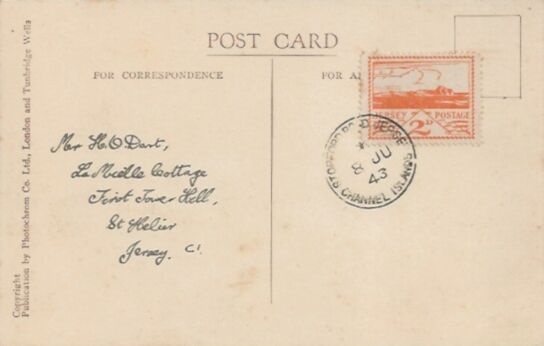 POST CARD
FOR CORRESPONDENCE
FOR A
Mr H.O Dart,
La Mielle Cottage
First Tower Hill,
St Helier
Jersey. C'.
JERSEY POSTAGE
2D
D JERSEY
8 JU
43
CHANNEL ISLANDS
Copyright
Publication by Photochrom Co. Ltd., London and Tunbridge Wells